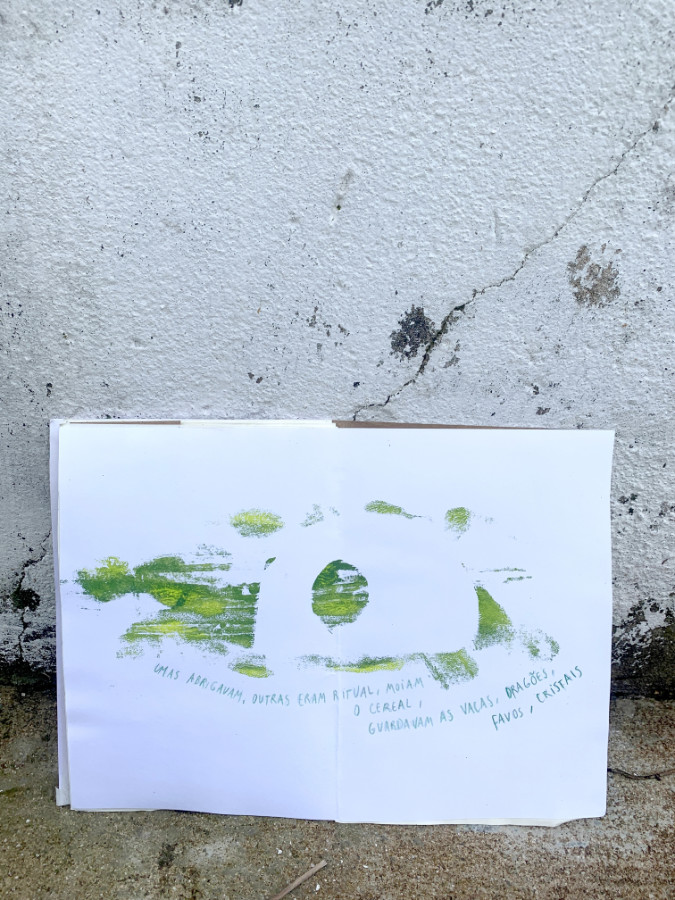 UMAS ABRIGAVAM, OUTRAS ERAM RITUAL, MOIAM
O CEREAL,
GUARDAVAM AS VACAS, DRAGÕES,
FAVOS, CRISTAIS